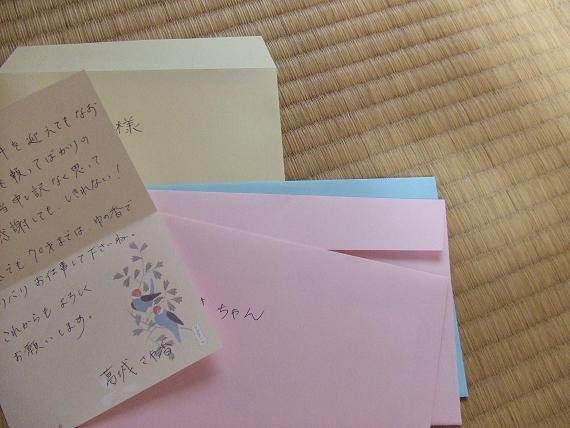 年を迎えてもなお
を頼ってばかりの
当申し訳なく思って
感謝しても、しきれない!
ても70才までは、ゆの香で
バリバリお仕事して下さいね。
これからもよろしく
お願いします。
葛城さや香
様
ちゃん